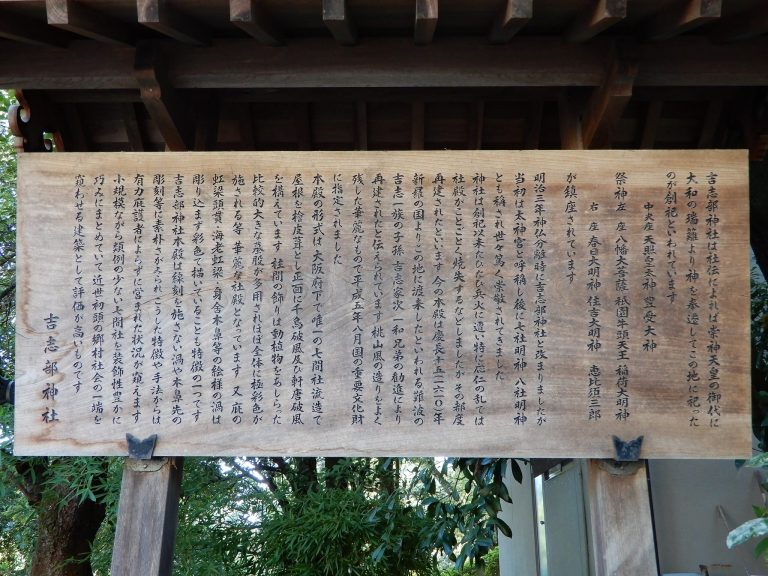 吉志部神社は社伝によれば崇神天皇の御代に
大和の瑞籬より神を奉遷してこの地に祀った
のが創祀といわれています
中央座 天照皇大神 豊受大神
祭神 左 座 八幡大菩薩 祇園牛頭天王 稲荷大明神
右 座 春日大明神 住吉大明神 恵比須三郎
が鎮座されています
明治三年神仏分離時に吉志部神社と改まりましたが
当初は太神宮と呼称し後に七社明神 八社明神
とも称され世々篤く崇敬されてきました
神社は創祀以来たびたび兵火に遭い特に応仁の乱では
社殿がことごとく焼失するなどしましたが その都度
再建されたといいます 今の本殿は慶長十五(一六一〇)年
新羅の国よりこの地に渡来したといわれる難波の
吉志一族の子孫 吉志家次 一和兄弟の勧進により
再建されたと伝えられています 桃山風の造りをよく
残した華麗なもので平成五年八月国の重要文化財
に指定されました
本殿の形式は 大阪府下で唯一の七間社流造で
屋根を桧皮葺とし正面に千鳥破風及び軒唐破風
を構えています 柱間の飾りは動植物をあしらった
比較的大きな蟇股が多用されほぼ全体に極彩色が
施される等 華麗な社殿となっています 又 庇の
虹梁頭貫 海老虹梁 身舎木鼻等の絵様の渦は
彫り込まず彩色で描いていることも特徴の一つです
吉志部神社本殿は繰刻を施さない渦や木鼻先の
彫刻等に素朴さがみられ こうした特徴や手法からは
有力庇護者によらずに営まれた状況が窺えます
小規模ながら類例の少ない七間社を装飾性豊かに
巧みにまとめていて近世初頭の郷村社会の一端を
窺わせる建築として評価が高いものです
吉志部神社